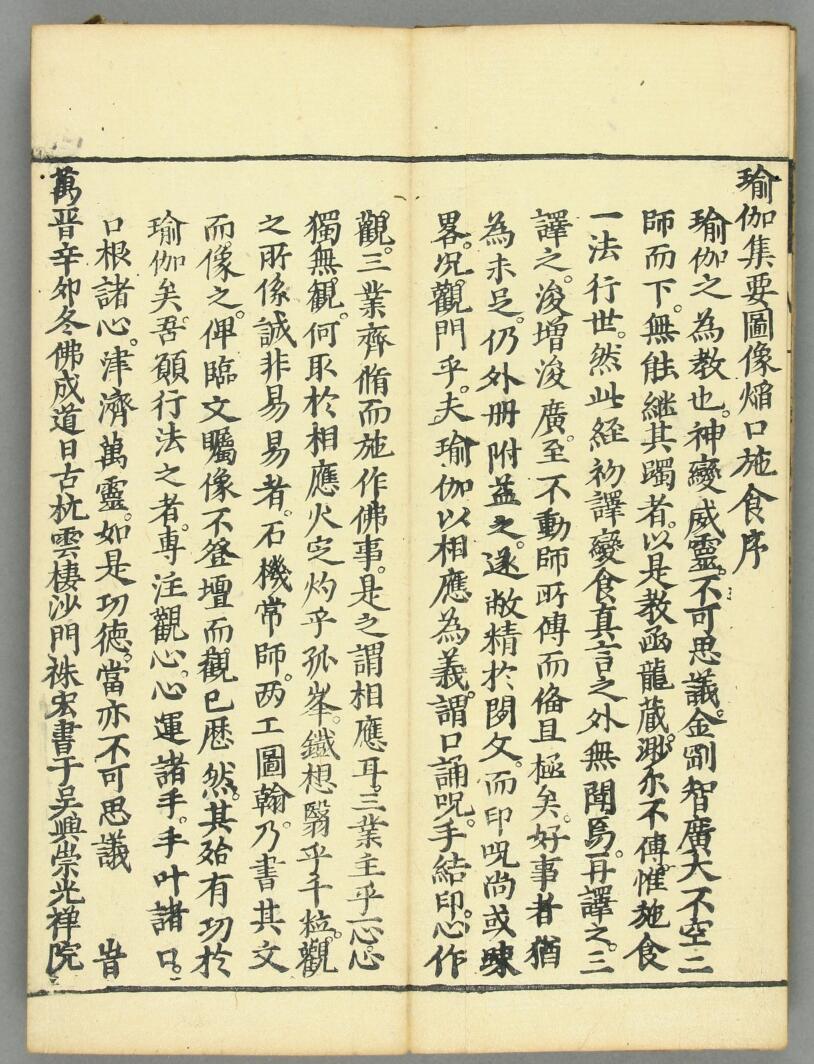 瑜伽集要圖像燄口施食序
瑜伽之為教也。神變威靈。不可思議。金剛智廣大不空二
師而下。無能繼其躅者。以是教函龍藏。渺尔不傳。惟施食
一法行世。然此経初譯變食真言之外無聞焉。再譯之。三
譯之。浚增浚廣。至不動師所傳而俻且極矣。好事者猶
為未足。仍外册附益之。遂敝精於閱文。而印呪尚或疎
畧。况觀門乎。夫瑜伽以相應為義。謂口誦呪。手結印。心作
觀。三業齊脩而施作佛事。是之謂相應耳。三業主乎心。心
獨無觀。何取於相應火㝎灼乎孤峯。鐵想翳乎千粒。觀
之所係誠非易易者。石機常師。丙工圖翰。乃書其文
而像之。俾臨文矚像不登壇而觀已歴然。其殆有功於
瑜伽矣。吾願行法之者。專注觀心。心運諸手。手叶諸口。
口根諸心。津濟萬靈。如是功德。當亦不可思議 旹
萬晋辛夘冬佛成道日古杭雲棲沙門袾宏書于吴興崇光禅院